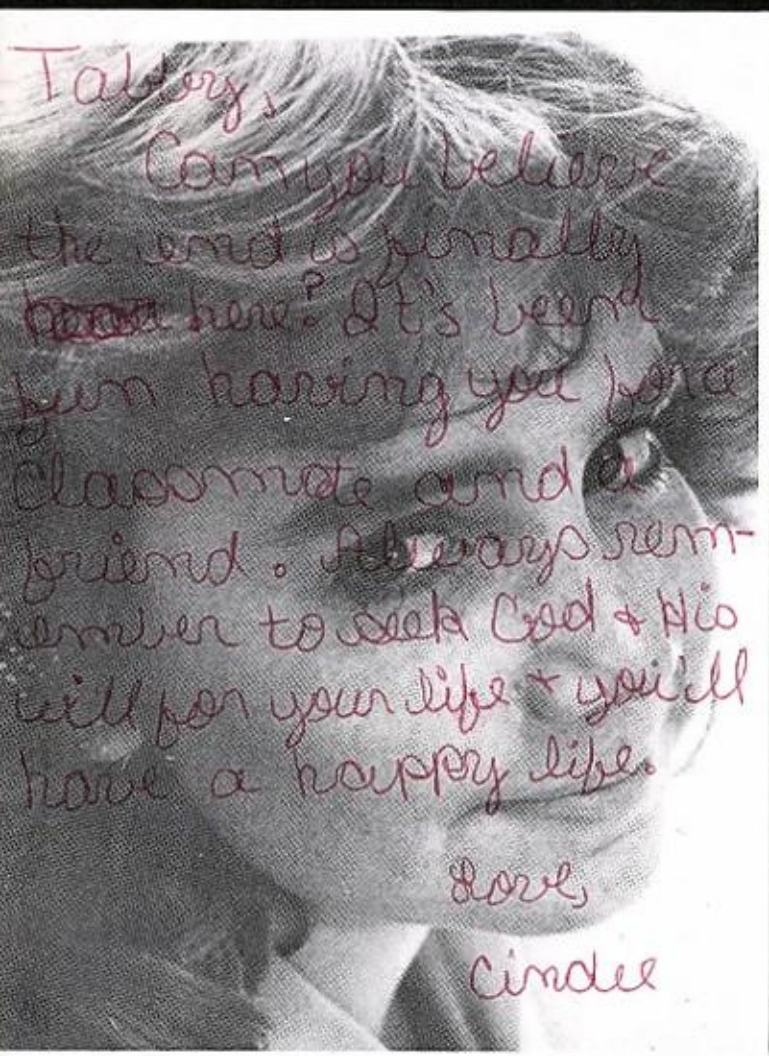 Tabby,
Can you believe
the end is finally
here? It's been
fun having you for a
classmate and a
friend. Always rem-
ember to seek God & His
will for your life & you'll
have a happy life.
Love,
Cindee